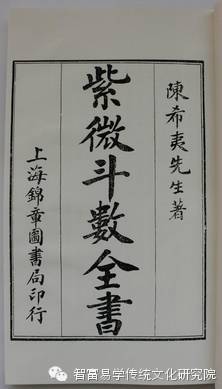 陳希夷先生著
紫微斗數全書
上海錦章圖書局印行
智富易学传统文化研究院